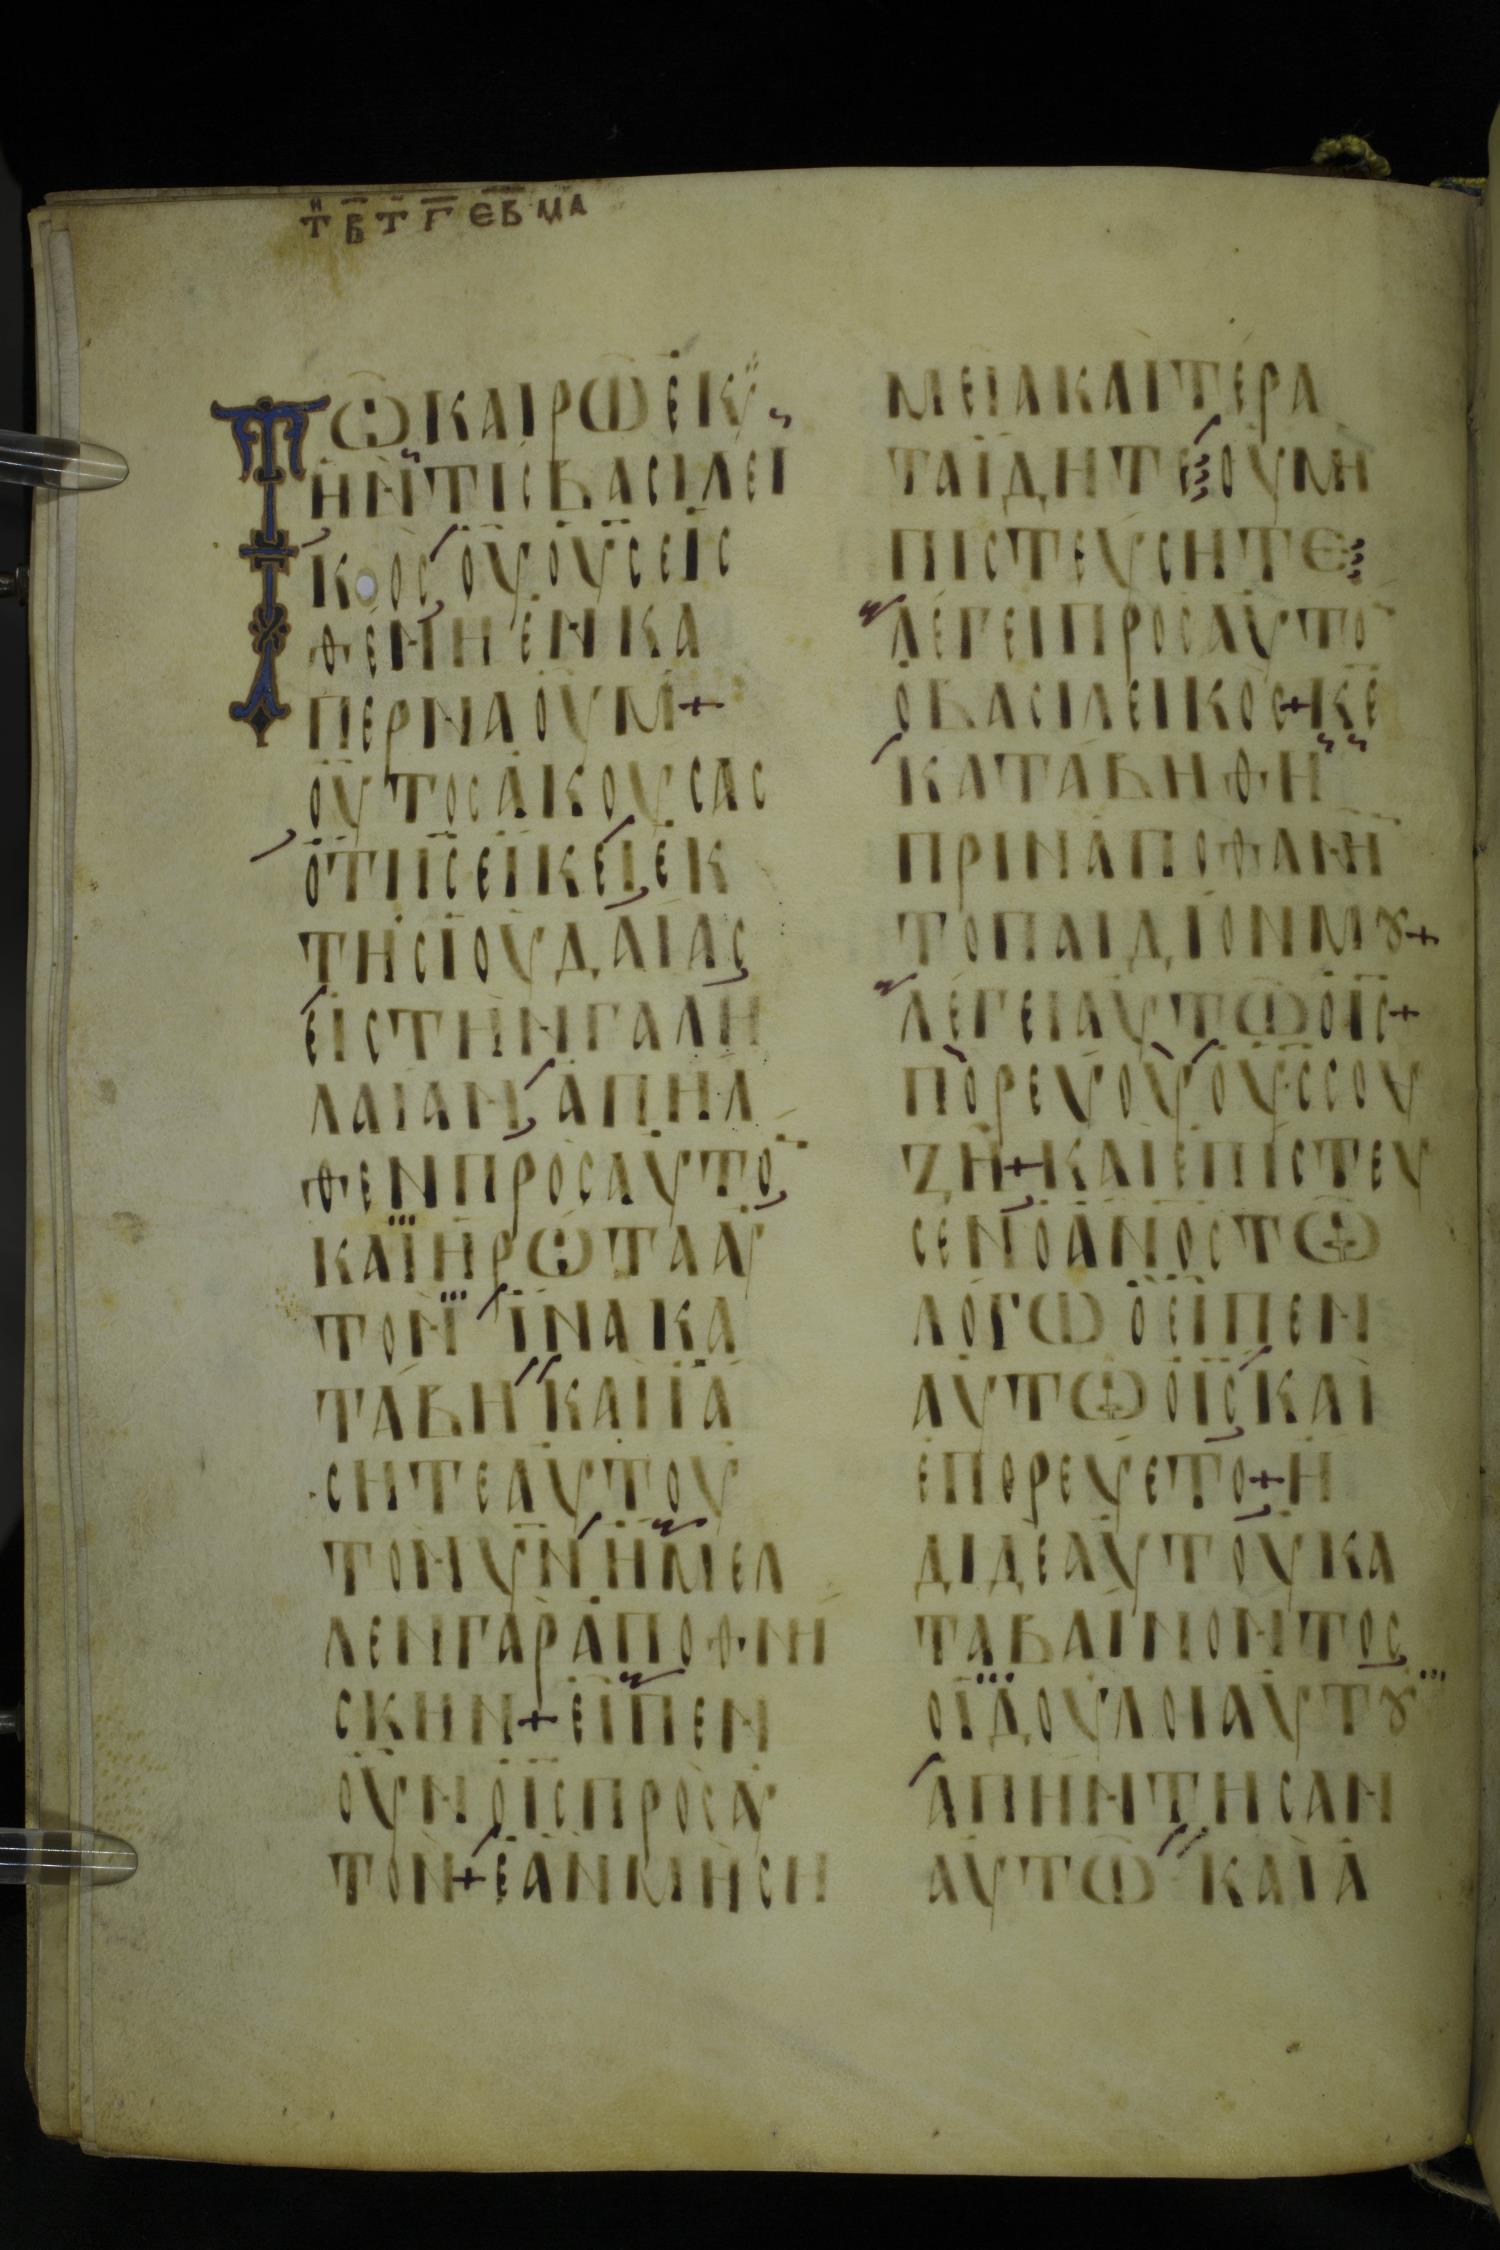 Τῆ Β̅ Τ Γ̅ ΕΒΔΜΑ
ΤΩ ΚΑΙΡΩ ΕΚΥ
ΝΗΝ ΤΙϹ ΒΑϹΙΛΕΙ
ΚΟϹ ΟΥ Ο ΥϹ ΕΙϹ
ΘΕΝΗ ΕΝ ΚΑ
ΠΕΡΝΑΟΥΜ+
ΟΥΤΟϹ ΑΚΟΥϹΑϹ
ΟΤΙ ΙϹ ΕΙΚΕΙ ΕΚ
ΤΗϹ ΙΟΥΔΑΙΑϹ
ΕΙϹ ΤΗΝ ΓΑΛΗ
ΛΑΙΑΝ ΑΠΗΛ
ΘΕΝ ΠΡΟϹ ΑΥΤΟ
ΚΑΙ ΗΡΩΤΑ ΑΥ
ΤΟΝ ΙΝΑ ΚΑ
ΤΑΒΗ ΚΑΙ ΙΑ
ϹΗΤΕ ΑΥΤΟΥ
ΤΟΝ ΥΝ ΗΜΕΛ
ΛΕΝ ΓΑΡ ΑΠΟΘΝΗ
ϹΚΗΝ+ ΕΙΠΕΝ
ΟΥΝ Ο ΙϹ ΠΡΟϹ ΑΥ
ΤΟΝ+ ΕΑΝ ΜΗ ϹΗ
ΜΕΙΑ ΚΑΙ ΤΕΡΑ
ΤΑ ΙΔΗΤΕ ΟΥ ΜΗ
ΠΙϹΤΕΥϹΗΤΕ
ΛΕΓΕΙ ΠΡΟϹ ΑΥΤΟ
Ο ΒΑϹΙΛΕΙΚΟϹ+ ΚΕ
ΚΑΤΑΒΗΘΗ
ΠΡΙΝ ΑΠΟΘΑΝΗ
ΤΟ ΠΑΙΔΙΟΝ ΜȢ+
ΛΕΓΕΙ ΑΥΤΩ Ο ΙϹ+
ΠΟΡΕΥΟΥ Ο ΥϹ ϹΟΥ
ΖΗ+ ΚΑΙ ΕΠΙϹΤΕΥ
ϹΕΝ Ο ΑΝΟϹ ΤΩ
ΛΟΓΩ Ο ΕΙΠΕΝ
ΑΥΤΩ Ο ΙϹ ΚΑΙ
ΕΠΟΡΕΥΕΤΟ+ Η
ΔΙ ΔΕ ΑΥΤΟΥ ΚΑ
ΤΑΒΑΙΝΟΝΤΟϹ
ΟΙ ΔΟΥΛΟΙ ΑΥΤȢ
ΑΠΗΝΤΗϹΑΝ
ΑΥΤΩ ΚΑΙ Α